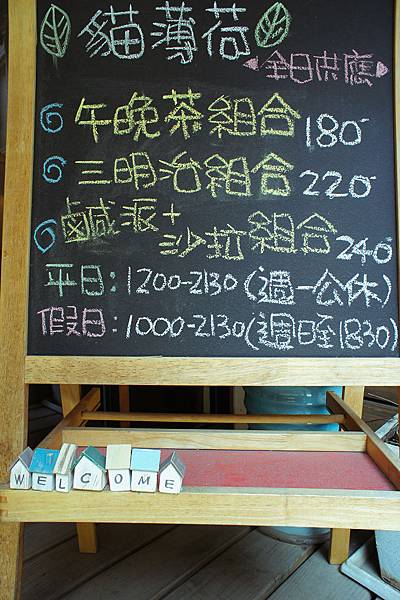 貓薄荷
全日供應
午晚茶組合 180
三明治組合 220
鹹派+
沙拉組合 240
平日：1200-2130 (週一公休)
假日：1000-2130(週日至1830)
WELCOME